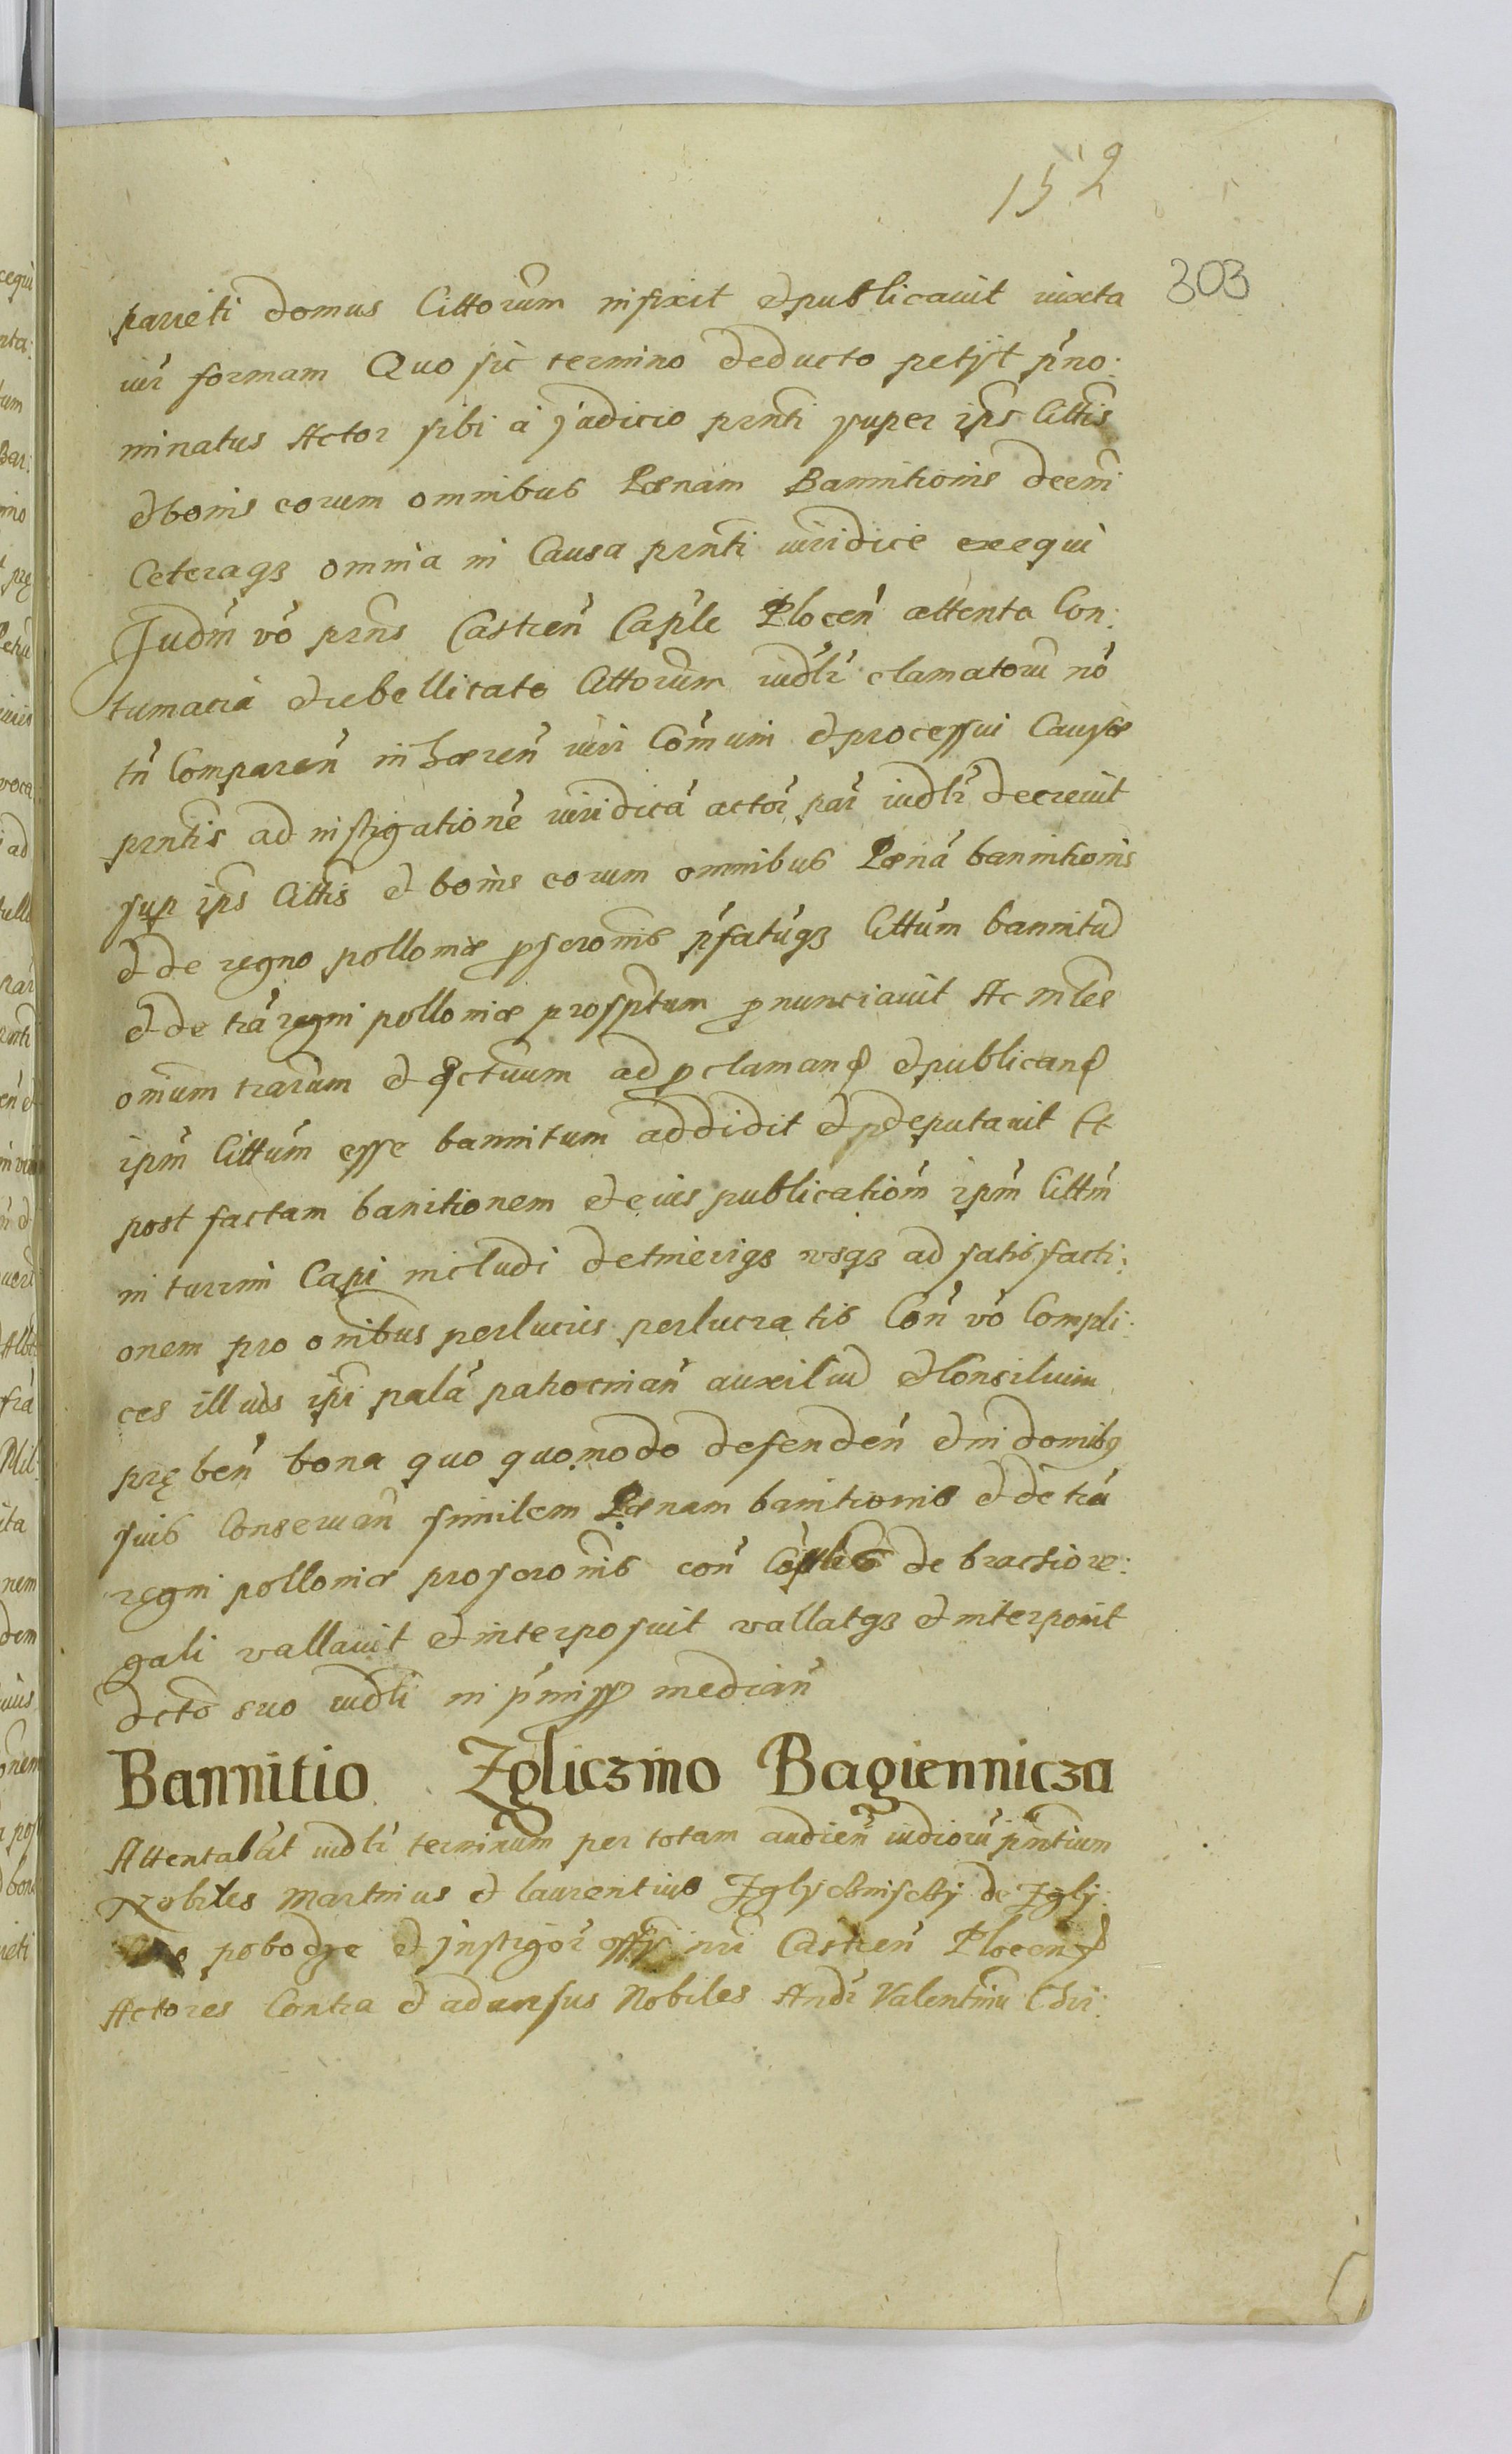 152
303
parieti domus Cittorum infixit et publicavit iuxta
iur formam Quo sic termino deducto petijt pno:
minatus Actor sibi a Judicio prnti super ips Cittis
et bonis eorum omnibus Pœnam Bannitionis decerni
Ceteraqз omnia in Causa prnti iuridice exequi
Judm vo prns Castren Caple Plocen attenta Con:
tumacia et rebellitate Cittorum iudlr clamatoru no
tn Comparen inhæren iuri Comuni et processui Causæ
prntis ad instigatione iuridica actor par iudlr decrevit
sup ips Cittis et bonis eorum omnibus Pœna bannitionis
et de regno polloniæ pscronis pfatuqз Cittum bannitu
et de tra regni polloniæ prosptum pnunciavit Ac mles
omium trarum et dictuum ad pclaman et publican
ipm Cittum esse bannitum addidit et deputavit Et
post factam banitionem et eius publicatiom ipm Cittm
in turrim Capi includi detineriqз usqз ad satisfacti:
onem pro omibus perlucris perlucratis Con vo Compli:
ces illius ipi pala patrocinan auxiliu et Consilium
pręben bona quo quomodo defenden et in domibus
suis Conservan similem Pœnam banitionis et de tra
regni polloniæ proscronis con de bractio re:
gali vallavit et interposuit vallatqз et interponit
dcto suo iudli in pmiss median
Bannitio Zgliczino Bagiennicza
Attentabat iudlr terminum per totam audien iudioru pntium
Nobiles Martinus et laurentius Zglychinschy de Zgly:
pobodze et jnstigor offy nri Castren Plocen
Actores Contra et adversus Nobiles Andr Valentinu Chri: